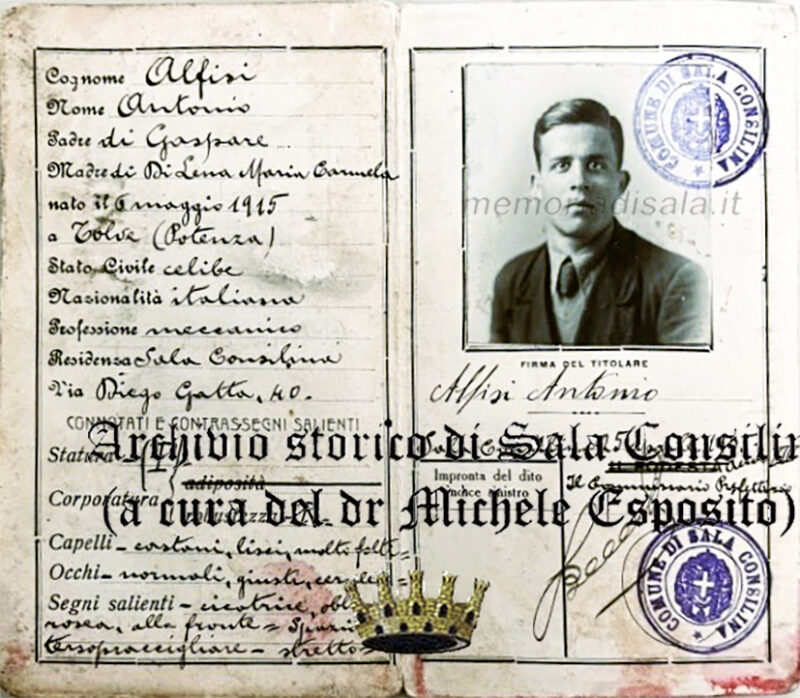 Cognome Alfisi
Nome Antonio
Padre di Gaspare
Madre di Di Lena Maria Carmela
nato il 6 maggio 1915
a Tolve (Potenza)
Stato Civile celibe
Nazionalità italiana
Professione meccanico
Residenza Sala Consilina
Via Diego Gatta, 40.
CONNOTATI E CONTRASSEGNI SALIENTI
Statura
adiposità
Corporatura
Capelli - castani, lisci, molto folti =
Occhi - normali, giusti,
Segni salienti - cicatrice,
rosea, alla fronte =
tersopraccigliare - stretto
COMUNE DI SALA CONSILINA
memoriadisala.it
FIRMA DEL TITOLARE
Alfisi Antonio
Archivio storico di Sala Consilin
(a cura del dr Michele Esposito)
Impronta del dito
indice sinistro
IL PODESTÀ
Il Commissario Prefettizio
COMUNE DI SALA CONSILINA